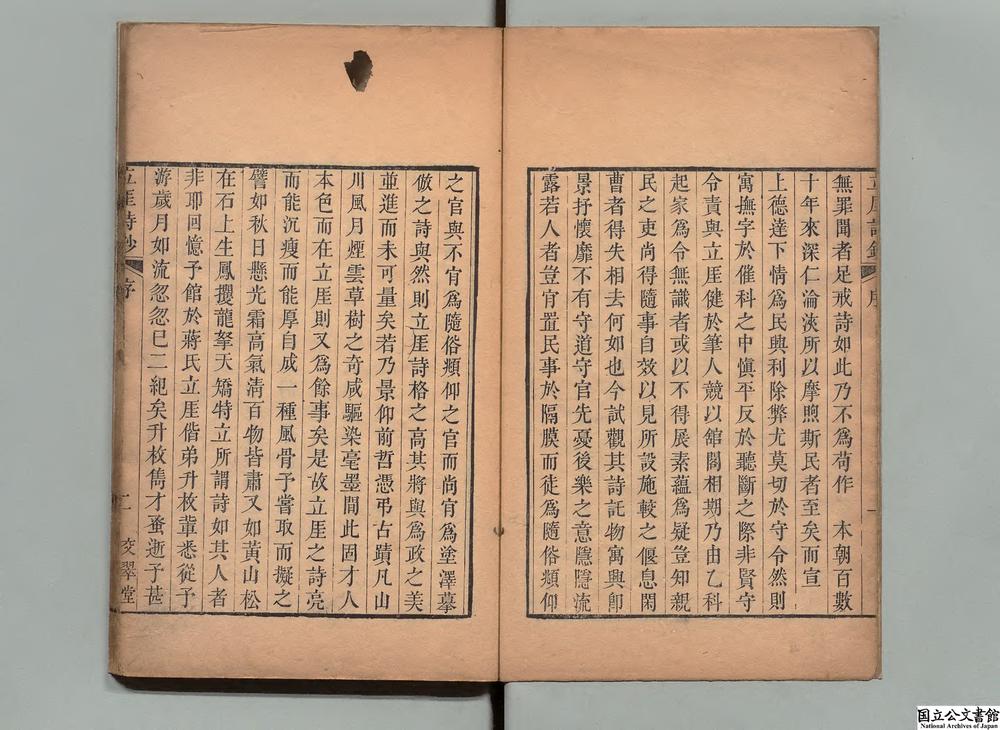 無罪聞者足戒詩如此乃不爲苟作　本朝百數
十年來深仁淪浹所以摩煦斯民者至矣而宣
上德達下情爲民興利除弊尤莫切於守令然則
寓撫字於催科之中愼平反於聽斷之際非賢守
令責與立厓健於筆人競以館閣相期乃由乙科
起家爲令無識者或以不得展素蘊爲疑豈知親
民之吏尚得隨事自效以見所設施較之偃息閑
曹者得失相去何如也今試觀其詩託物寓興卽
景抒懷靡不有守道守官先憂後樂之意隱隱流
露若人者豈官置民事於隔膜而徒爲隨俗頫仰
之官與不肎爲隨俗頫仰之官而尚肎爲塗澤摹
倣之詩與然則立厓詩格之高其將與爲政之美
並進而未可量矣若乃景仰前哲憑弔古蹟凡山
川風月煙雲草樹之奇咸驅染毫墨間此固才人
本色而在立厓則又爲餘事矣是故立厓之詩亮
而能沉瘦而能厚自成一種風骨予嘗取而擬之
譬如秋日懸光霜高氣淸百物皆肅又如黃山松
在石上生鳳攫龍拏天矯特立所謂詩如其人者
非耶回憶予館於蔣氏立厓偕弟升枚輩悉從予
游歲月如流忽忽已二紀矣升枚雋才蚤逝予甚
立厓詩鈔
序
二
交翠堂
國立公文書館
National Archives of Japan